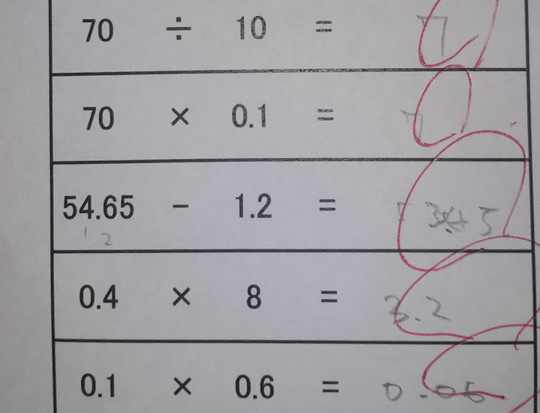 70 ÷ 10 = 7
70 × 0.1 = 7
54.65 − 1.2 =
1 2
0.4 × 8 = 3.2
0.1 × 0.6 = 0.06